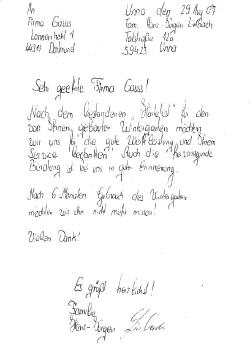 An
Firma Gauss
44319 Dortmund
Unna den 29 Aug 09
Fam. Hans-Jürgen
59423 Unna
Sehr geehrte Firma Gauss!
Nach dem bestandenen „Härtetest" für den
von Ihnen gebauten Wintergarten möchten
wir uns für die gute Beratung und Ihrem
Service bedanken. Auch die
Beratung ist bei uns in guter Erinnerung.
Nach 6 Monaten Gebrauch des Wintergarten
möchten wir ihn nicht mehr missen!
Vielen Dank!
Es grüßt herzlichst!
Familie
Hans-Jürgen